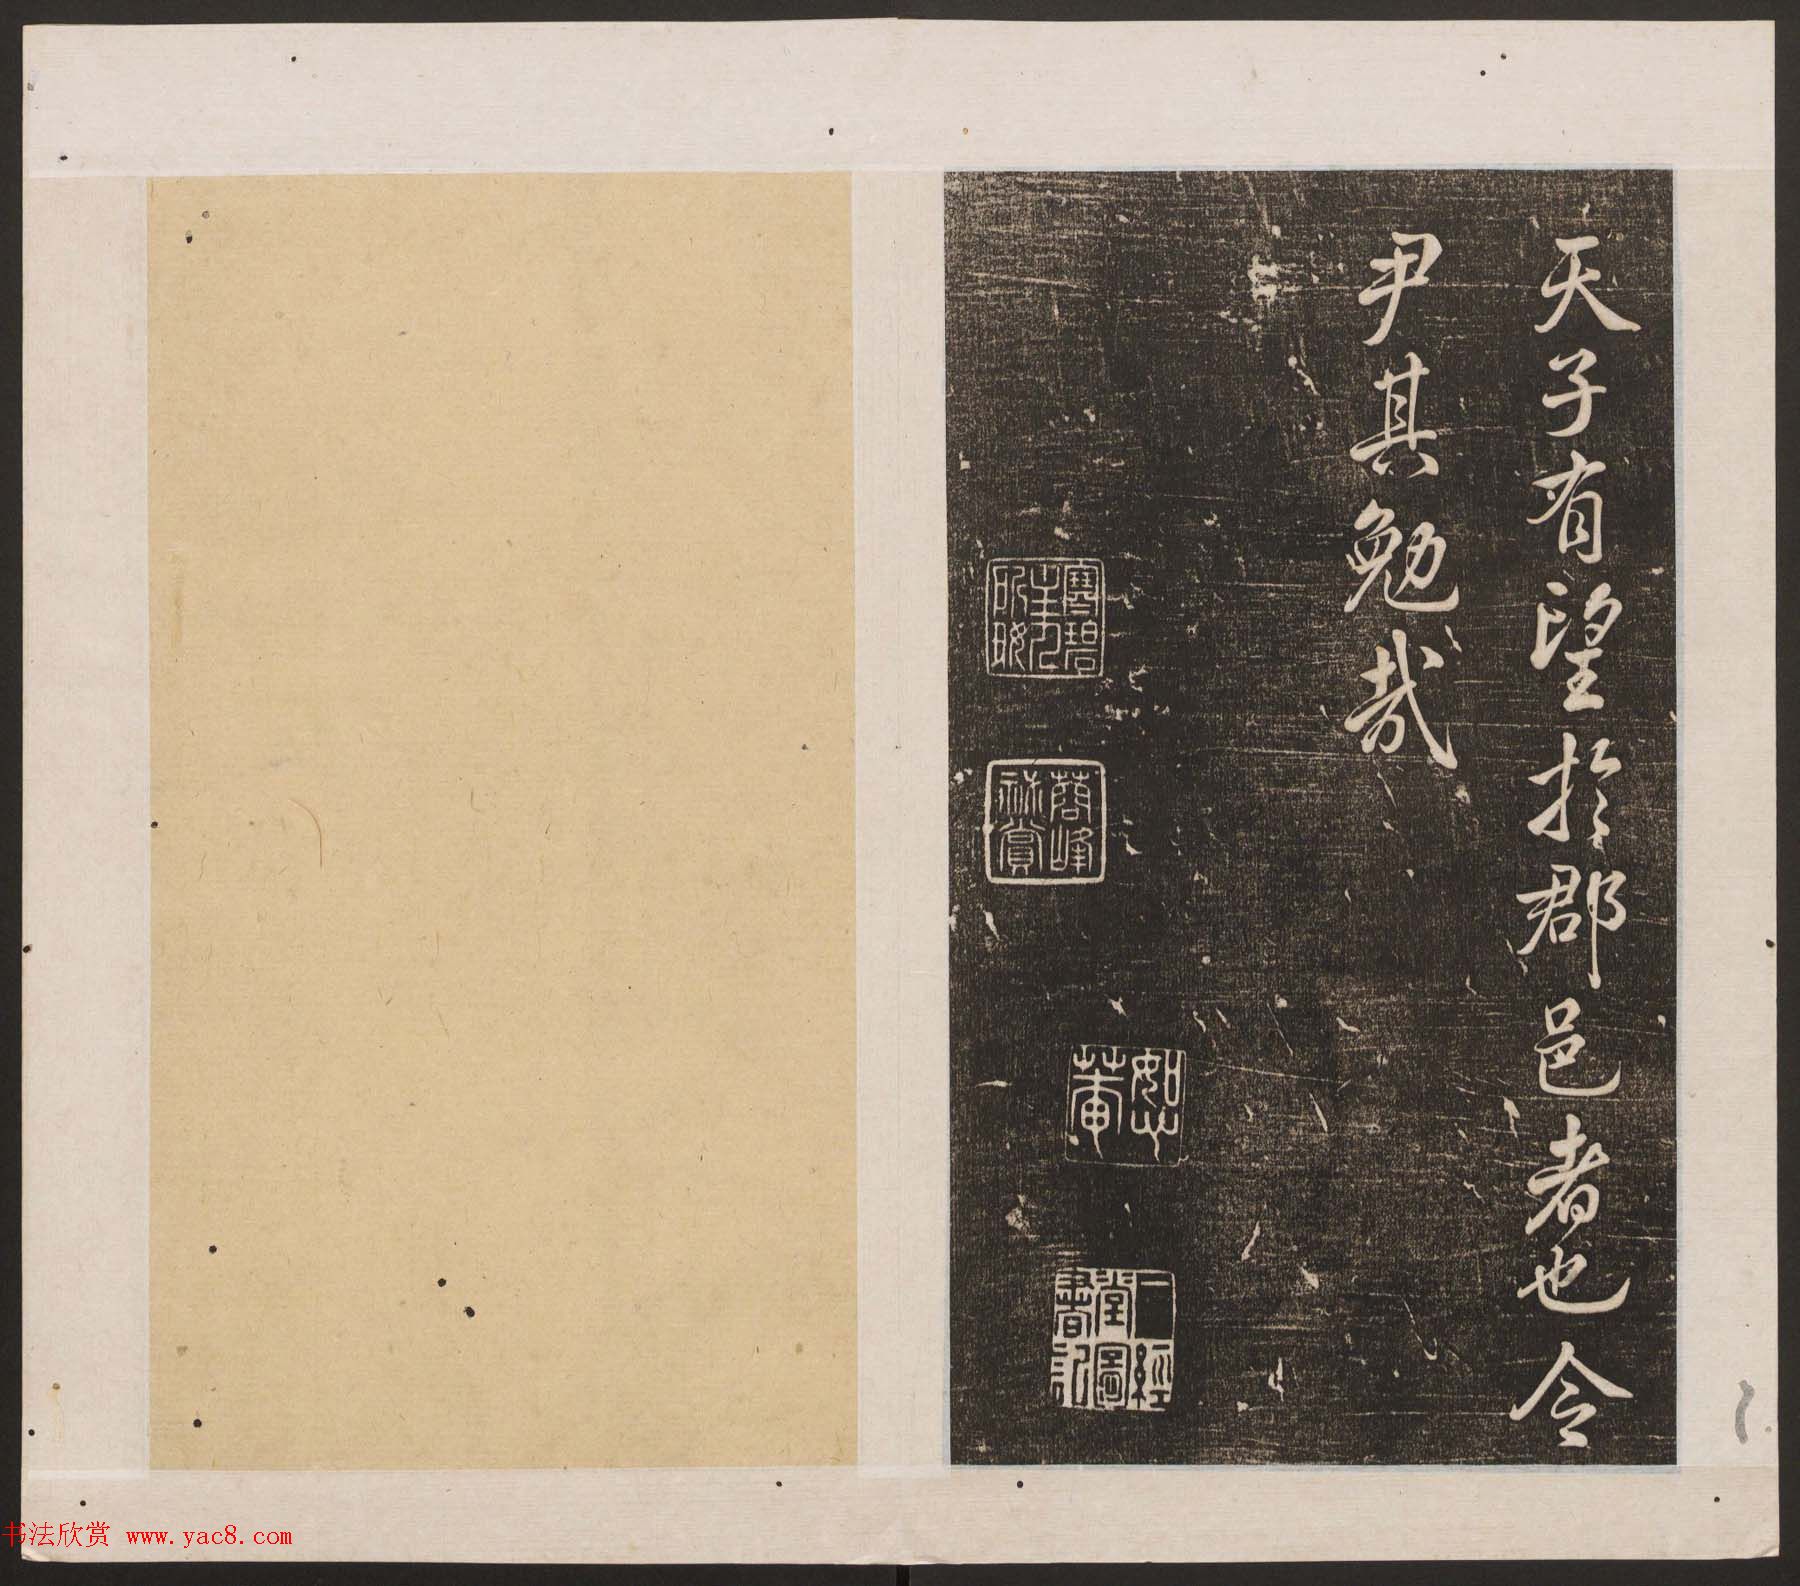 天子有望於郡邑者也令
尹其勉哉
蕉林
書法欣赏 www.yac8.com